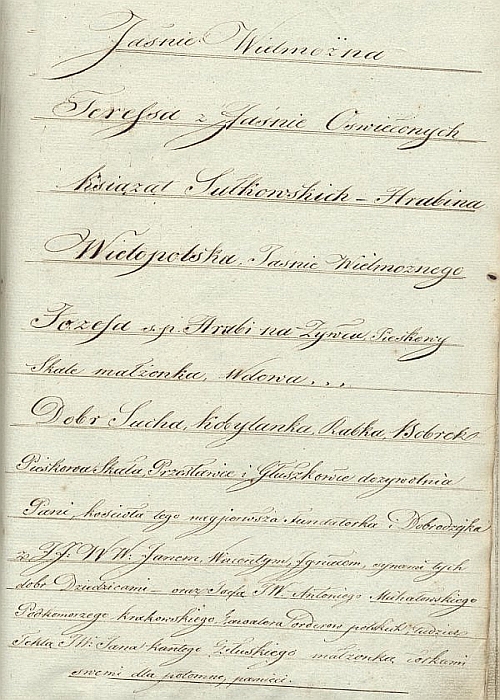 Jaśnie Wielmożna
Teressa z Jaśnie Oswieconych
Książat Sułkowskich – Hrabina
Wielopolska, Jasnie Wielmożnego
Jozefa s.p. Hrabi na Zywcu, Pieskowy
Skale małzonka, Wdowa...
Dobr Sucha, Kobylanka, Rabka, Bobrek
Pieskowa Skała, Przesławice i Głuszkowie dozywotnia
Pani, kościoła tego naypierwsza fundatorka i Dobrodzijka
z JJ. WW: Janem, Wincentym, Ignacem, synami tych
dobr Dziedzicami – oraz JW Antoniego Michałowskiego
Podkomorzego krakowskiego kawalera orderow polskich
Tekla JW: Jana Kantego Załuskiego małzonka corkami
swemi dla potomney pamieci.